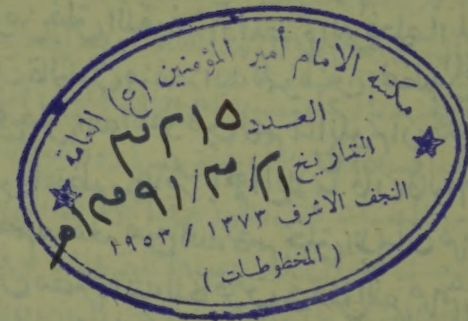 مكتبة الامام أمير المؤمنين (ع) العامة
العدد ٣٢١٥
التاريخ ٢١/٣/١٣٩١ه
النجف الاشرف ١٣٧٣ / ١٩٥٣
( المخطوطات )